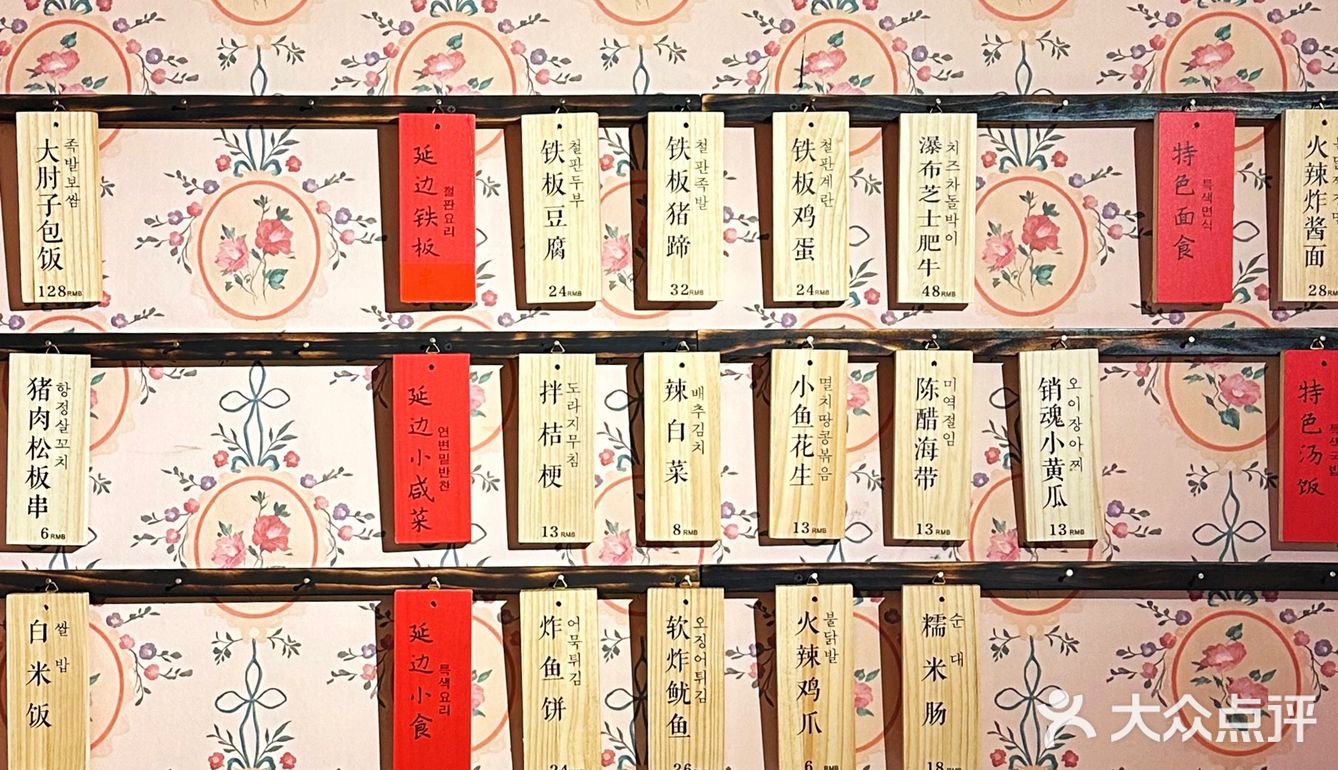 大肘子包饭
족발보쌈
128RMB
延边铁板
철판요리
铁板豆腐
철판두부
24RMB
铁板猪蹄
철판족발
32RMB
铁板鸡蛋
철판계란
24RMB
瀑布芝士肥牛
치즈차돌박이
48RMB
特色面食
특색면식
火辣炸酱面
28RMB
猪肉松板串
항정살꼬치
6RMB
延边小咸菜
연변밑반찬
拌桔梗
도라지무침
13RMB
辣白菜
배추김치
8RMB
小鱼花生
멸치땅콩볶음
13RMB
陈醋海带
미역절임
13RMB
销魂小黄瓜
오이장아찌
13RMB
特色汤饭
白米饭
쌀밥
延边小食
특색요리
炸鱼饼
어묵튀김
24
软炸鱿鱼
오징어튀김
26
火辣鸡爪
불닭발
6RMB
糯米肠
순대
18RMB
大众点评